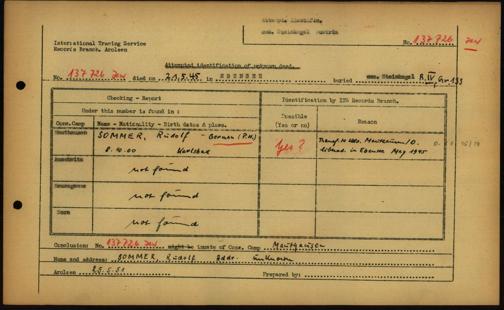 Attempt. Identific.
cem. Steinkogel Austria
No. 137726 Jew
International Tracing Service
Records Branch, Arolsen
Attempted identification of unknown dead.
No. 137726 Jew died on 21.5.45 in EBENSEE buried cem. Steinkogel R.IV, Gr. 133
Checking - Report
Identification by ITS Records Branch.
Under this number is found in:
Feasible
(Yes or no)
Reason
Conc.Camp
Name - Nationality - Birth dates & place.
Mauthausen
SOMMER, Rudolf - German (P.W.)
8.10.00 Karlsbad
Yes?
Transf. to Mauthausen/
liberat. in Ebensee May 1945
Auschwitz
not found
Neuengamme
not found
Dora
not found
Conclusion: No. 137726 Jew might be inmate of Conc. Camp Mauthausen
Name and address: SOMMER, Rudolf Addr. Unknown
Arolsen 25.5.51 Prepared by: